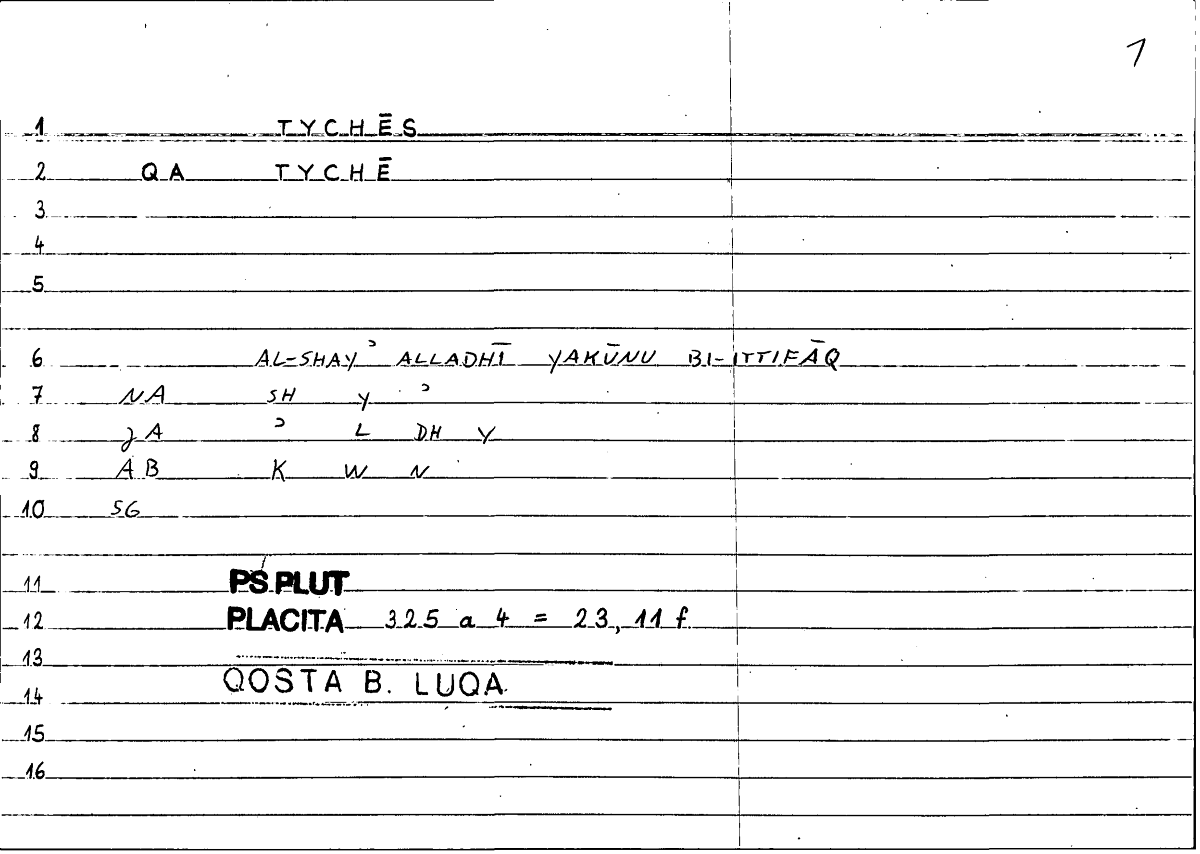 1
1 TYCHĒS
2 QA TYCHĒ
3
4
5
6 AL-SHAYʾ ALLADHĪ YAKŪNU BI-ITTIFĀQ
7 NA SH Y ʾ
8 JA ʾ L DH Y
9 AB K W N
10 SG
11 PS.PLUT
12 PLACITA 325 a 4 = 23, 11 f
13
14 QOSTA B. LUQA
15
16